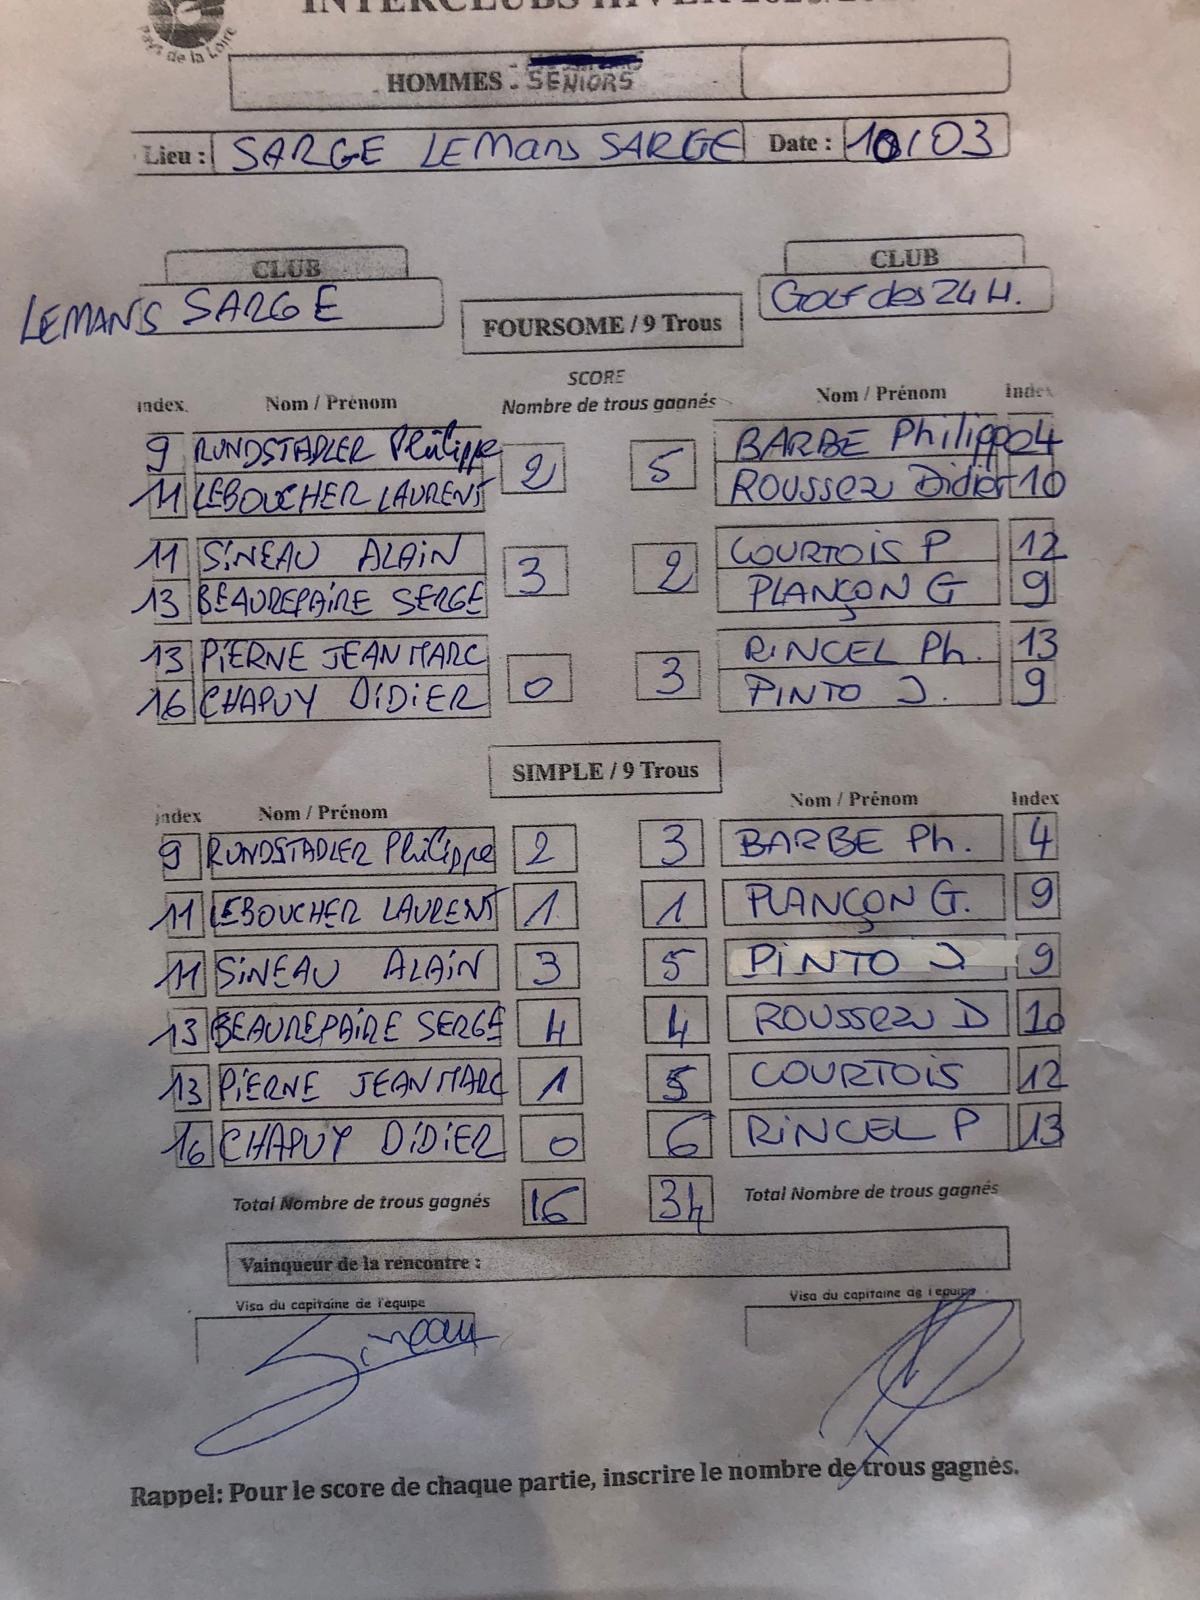 INTERCLUBS HIVER
Pays de la Loire
HOMMES - SENIORS
Lieu : SARGE LEMans SARGE Date : 10/03
CLUB CLUB
LEMANS SARGE GOLF des 24 H.
FOURSOME / 9 Trous
SCORE
Index Nom / Prénom Nombre de trous gagnés Nom / Prénom Index
9 RUNDSTADLER Philippe 2 5 BARBE Philippe 4
11 LEBOUCHER LAURENT ROUSSEZ Didier 10
11 SINEAU ALAIN 3 2 COURTOIS P 12
13 BEAUREPAIRE SERGE PLANÇON G 9
13 PIERNE JEAN MARC 0 3 RINCEL Ph. 13
16 CHAPUY DIDIER PINTO J. 9
SIMPLE / 9 Trous
Index Nom / Prénom Nom / Prénom Index
9 RUNDSTADLER Philippe 2 3 BARBE Ph. 4
11 LEBOUCHER LAURENT 1 1 PLANÇON G. 9
11 SINEAU ALAIN 3 5 PINTO J 9
13 BEAUREPAIRE SERGE 4 4 ROUSSEZ D 10
13 PIERNE JEAN MARC 1 5 COURTOIS 12
16 CHAPUY DIDIER 0 6 RINCEL P 13
Total Nombre de trous gagnés 16 34 Total Nombre de trous gagnés
Vainqueur de la rencontre :
Visa du capitaine de l'equipe Visa du capitaine de l'equipe
Sineau
Rappel: Pour le score de chaque partie, inscrire le nombre de trous gagnés.